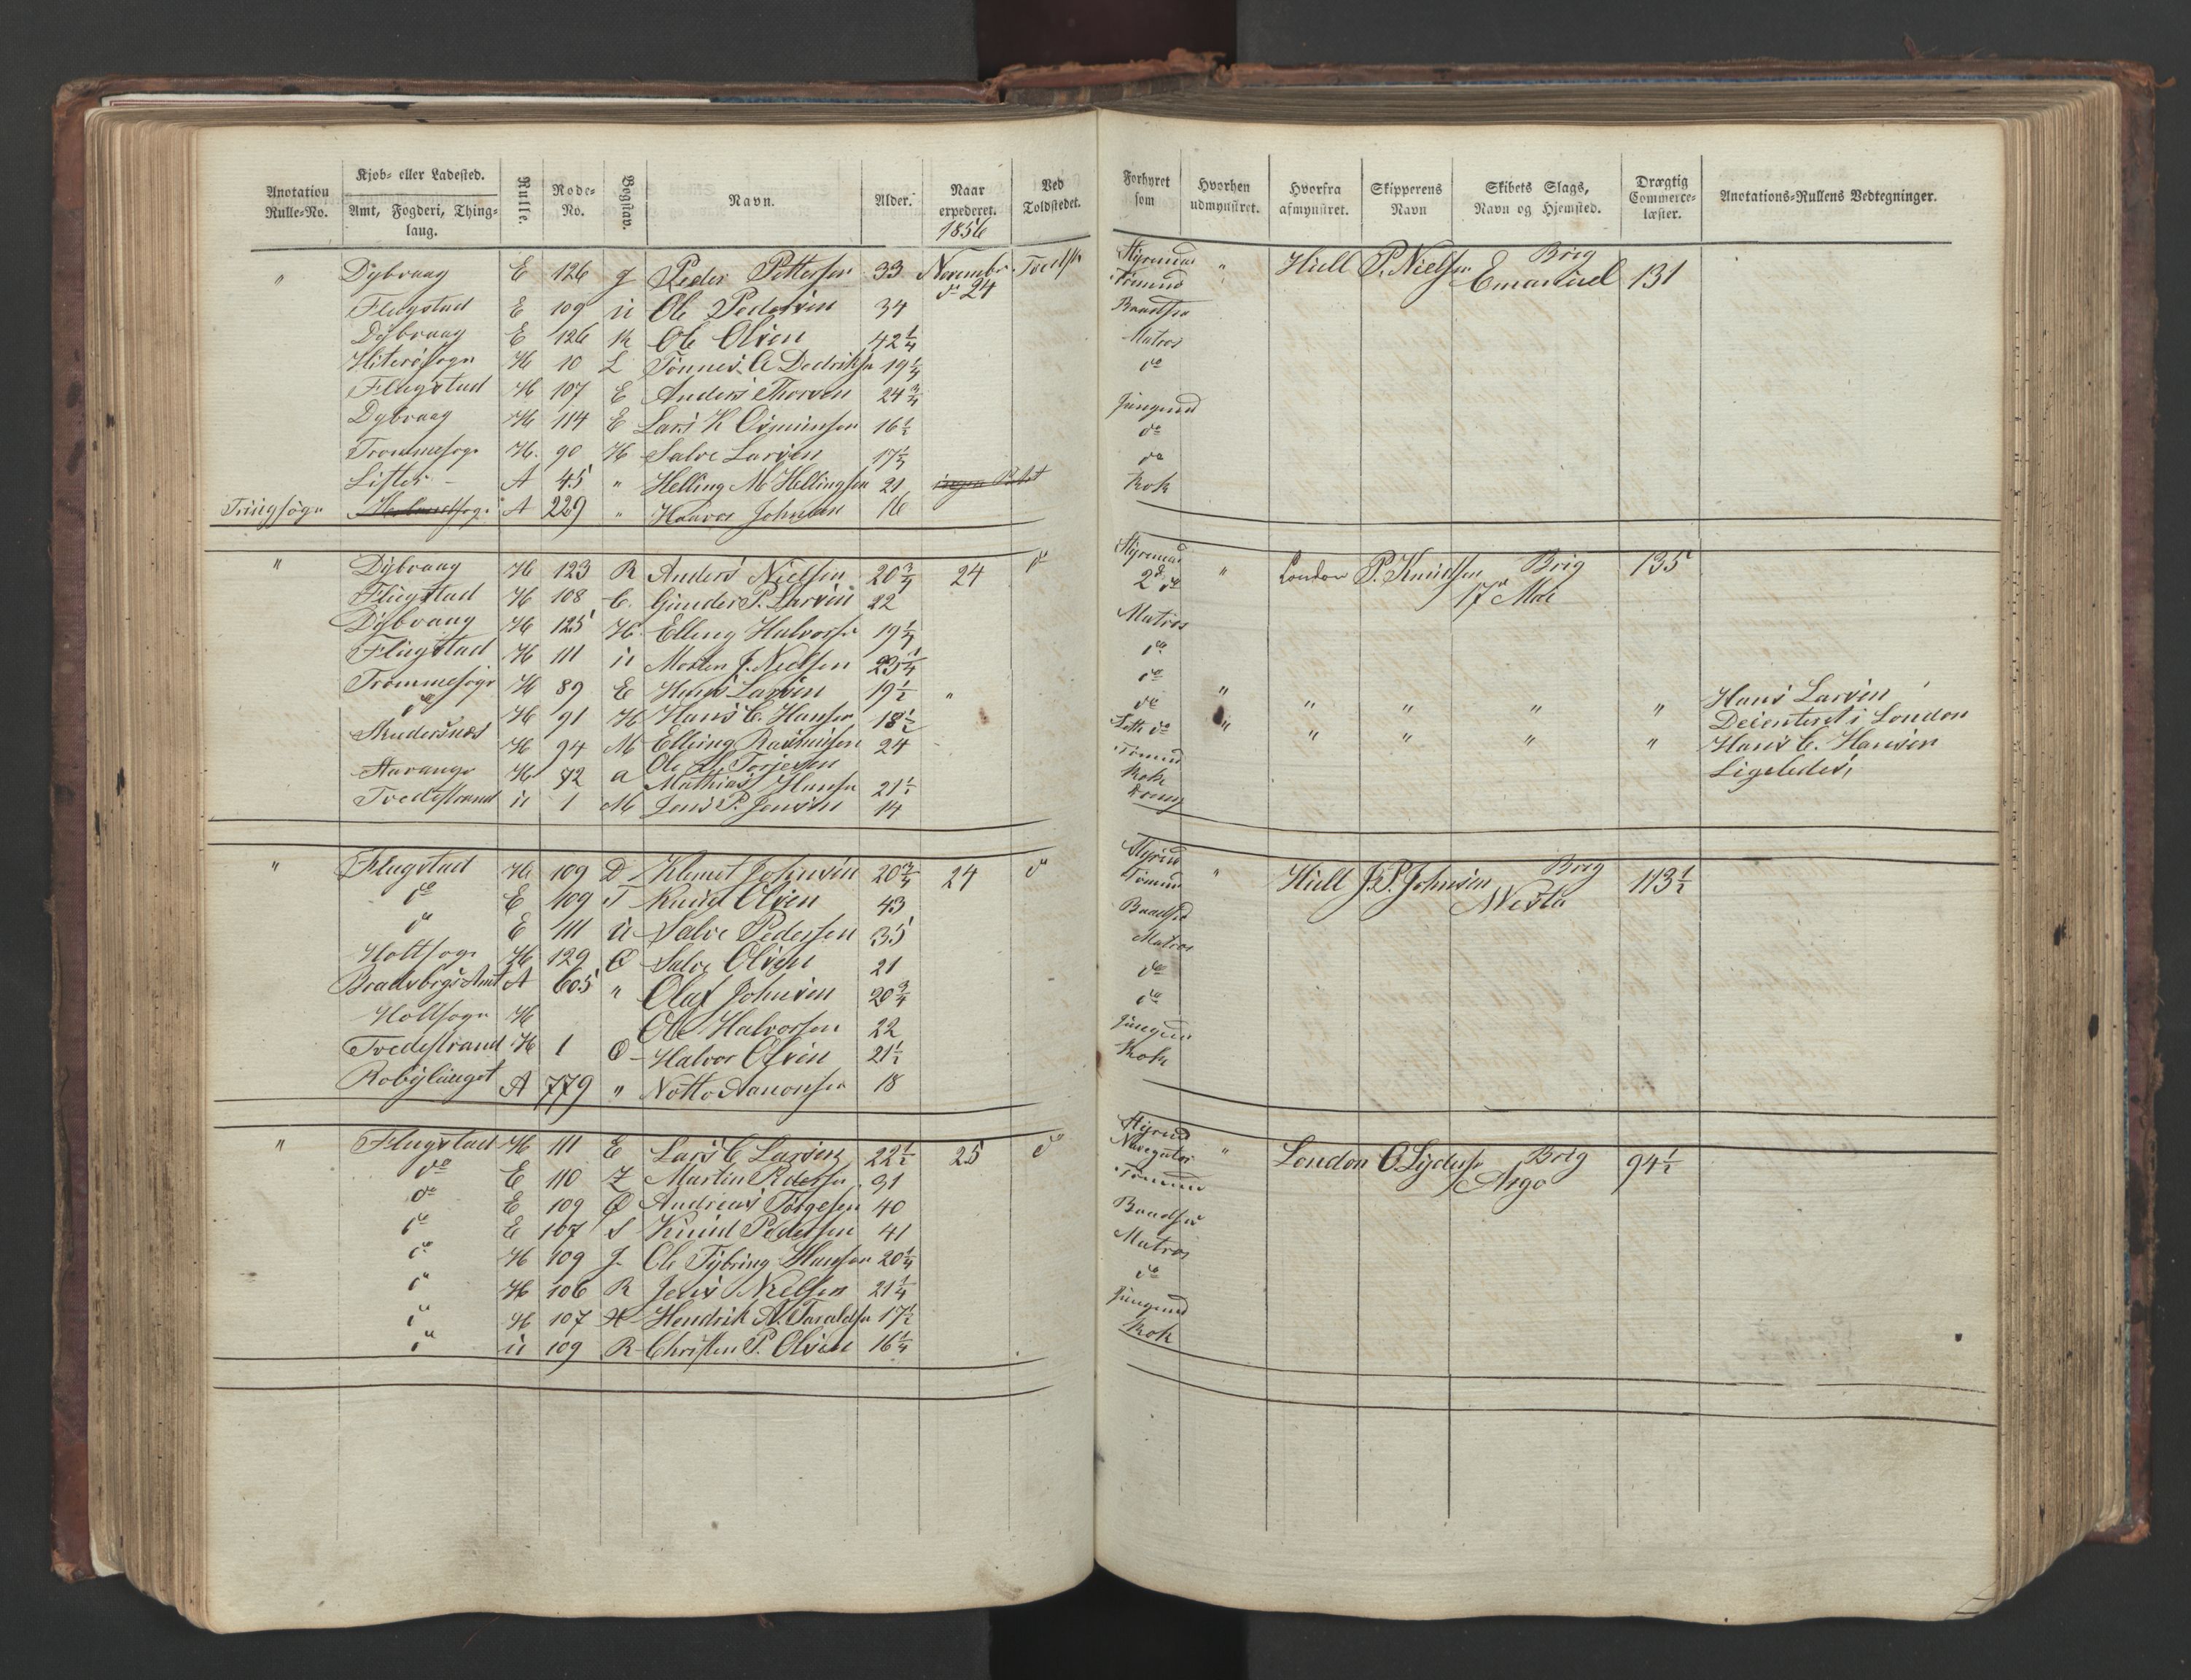 Anotation Rulle-No. | Kjøb- eller Ladested. Amt, Fogderi, Thinglaug. | Rulle. | Rode-No. | Bogstav. | Navn. | Alder. | Naar expederet. 1856 | Ved Toldstedet.
" Dybvaag E 126 g Peder Pettersen 33 Novembr Tvedst
d 24
Flugstad E 109 ü Ole Pedersen 34
Dybvaag E 126 K Ole Olsen 42¼
Hiterøsogn H 10 L Tønnes A Dedriksn 19¼
Flugstad H 107 E Anders Thorsen 24¾
Dybvaag H 114 E Lars K Osmunsen 16½
Trommesogn H. 90 H Salve Larsen 17¼
Lister - A 45 " Helling M Hellingsen 21
A 229 " Haavor Johnsen 16
" Dybvaag H 123 R Anders Nielsen 20¾ 24 do
Flugstad H 108 C. Gunder P. Larsen 22
Dybvaag H 125 H. Elling Halvorsn 19¼
Flugstad H 111 ü Morten J. Nielsen 23¼
Trommesogn H 89 E Hans Larsen 19½ "
do H 91 H Hans C. Hansen 18½
H 94 M Elling Rasmusen 24
Ole Torjesen
H 72 a Mathias Hansn 21½
Tvedestrand ü 1 M Jens P. Jensen 14
" Flugstad H 109 D Klemet Johnsen 20¾ 24 do
do E 109 T Knud Olsen 43
do E 111 ü Salve Pedersen 35
Holtsogn H 129 O Salve Olsen 21
Bratsbergs Amt A 605 " Olaf Johnsen 20¾
Holtsogn H Ole Halvorsen 22
Tvedestrand H 1 O Halvor Olsen 21½
Robyglauget A 779 " Notto Aanonsen 18
" Flugstad H 111 E Lars C Larsen 22½ 25 do
do E 110 Z Martin Pedersen 31
do E 109 Ø Andreas Torgesen 40
do E 107 S Knud Pedersen 41
do H 109 J Ole Tybring Hansen 20¼
do H 106 R Jens Nielsen 21¼
do H 107 H Hendrik N. Taraldsn 17½
do ü 109 R Christen P. Olsen 16¼
Forhyret som | Hvorhen udmynstret. | Hvorfra afmynstret. | Skipperens Navn | Skibets Slags, Navn og Hjemsted. | Drægtig Commerce-læster. | Anotations-Rullens Vedtegninger.
Styrmand " Hull P. Nielsen Brig Emanuel 131
Tømmd
Baadsm
Matros
do
Jungmd
do
do
Kok
Styrmand " London P. Knudsen Brig 17de Mai 135
2d do
Matros
do
do " Hans Larsen
do " " " " " Deienteret i London
do " " " " Hans C. Hansen
Tømmd Ligeledes,
Kok
Styrmd " Hull J. P. Johnsen Brig Nesta 113½
Tømmd
Baadsm
Matros
do
do
Jungmd
Kok
Styrmd " London O. Lydersn Brig Argo 94½
Navegatør
Tømmd
Baadsm
Matros
do
Jungmd
Kok